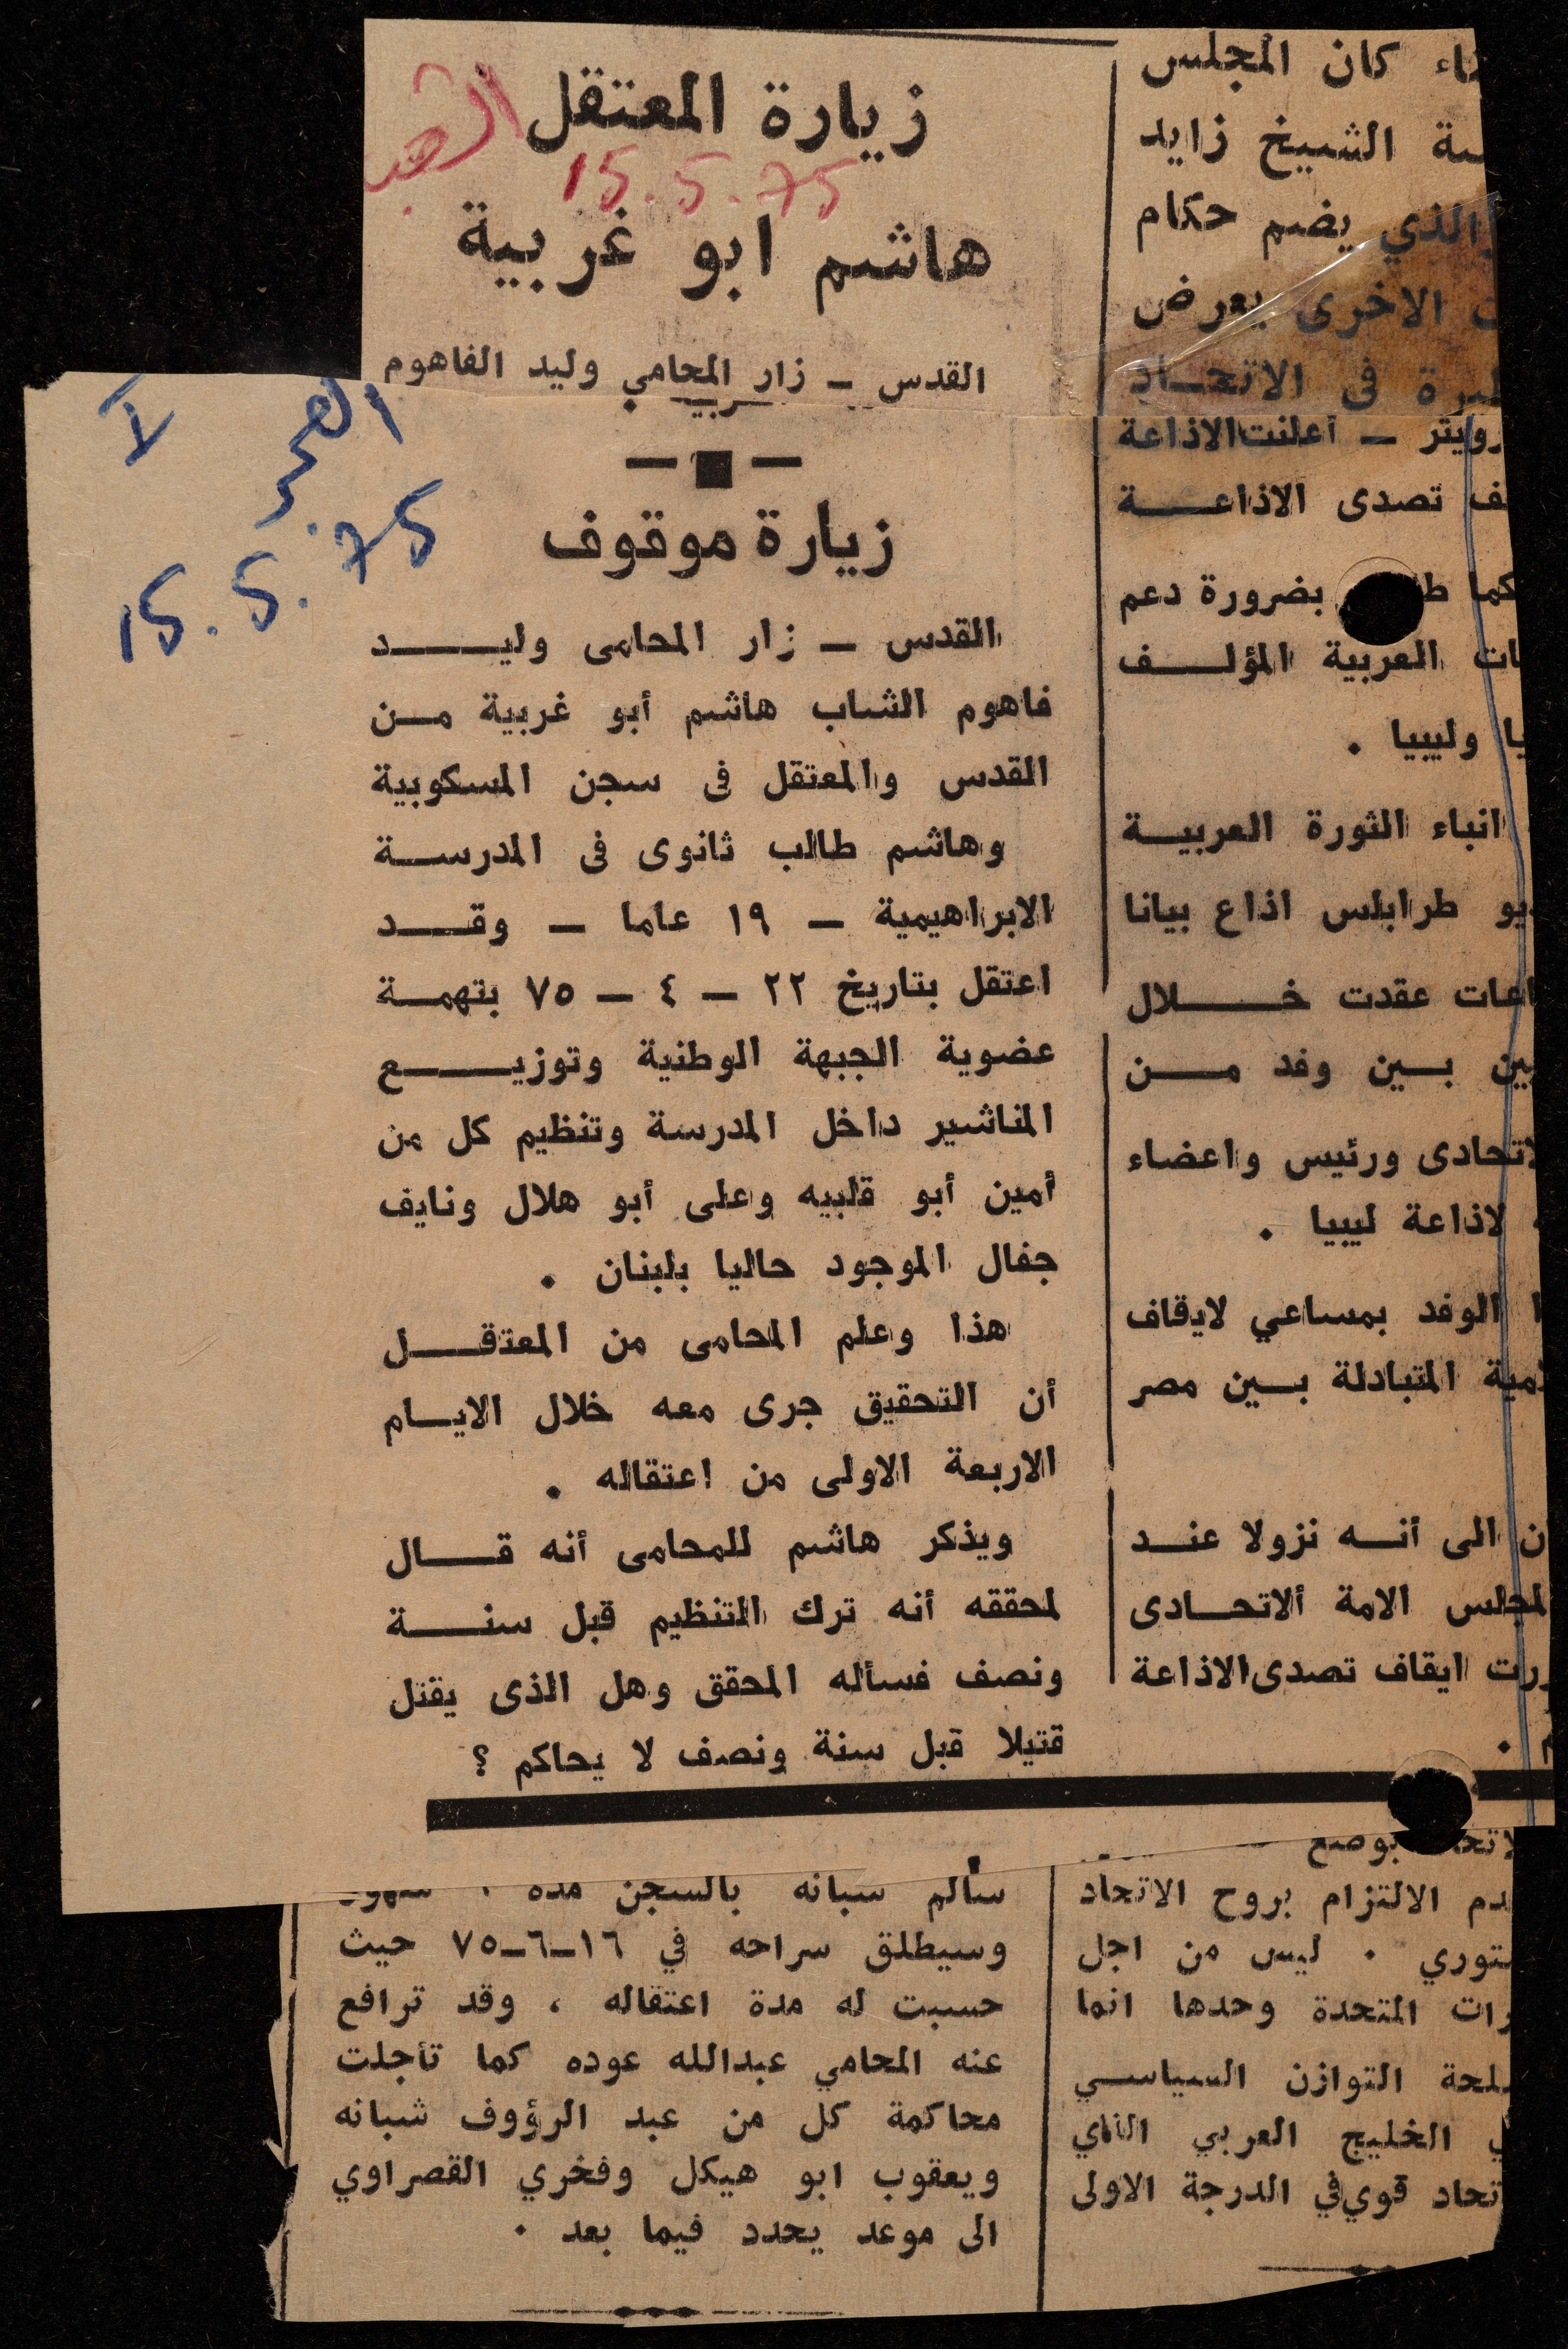 زيارة المعتقل
15.5.75
هاشم ابو غربية
القدس ـ زار المحامي وليد الفاهوم
الفجر
15.5.75
زيارة موقوف
القدس ـ زار المحامى وليد
فاهوم الشاب هاشم أبو غربية من
القدس والمعتقل فى سجن المسكوبية
وهاشم طالب ثانوى فى المدرسة
الابراهيمية ـ ١٩ عاما ـ وقد
اعتقل بتاريخ ٢٢ ـ ٤ ـ ٧٥ بتهمة
عضوية الجبهة الوطنية وتوزيع
المناشير داخل المدرسة وتنظيم كل من
أمين أبو قلبيه وعلى أبو هلال ونايف
جفال الموجود حاليا بلبنان .
هذا وعلم المحامى من المعتقل
أن التحقيق جرى معه خلال الايام
الاربعة الاولى من اعتقاله .
ويذكر هاشم للمحامى أنه قال
لمحققه أنه ترك التنظيم قبل سنة
ونصف فسأله المحقق وهل الذى يقتل
قتيلا قبل سنة ونصف لا يحاكم ؟
سالم سبانه بالسجن مدة
وسيطلق سراحه في ١٦-٦-٧٥ حيث
حسبت له مدة اعتقاله ، وقد ترافع
عنه المحامي عبدالله عوده كما تأجلت
محاكمة كل من عبد الرؤوف شبانه
ويعقوب ابو هيكل وفخري القصراوي
الى موعد يحدد فيما بعد .
كان المجلس
الشيخ زايد
والذي يضم حكام
الاخرى يعرض
فى الاتحاد
رويتر ـ أعلنت الاذاعة
تصدى الاذاعة
كما بضرورة دعم
العربية المؤلف
وليبيا .
انباء الثورة العربية
طرابلس اذاع بيانا
عقدت خلال
بين وفد من
ورئيس واعضاء
لاذاعة ليبيا .
الوفد بمساعي لايقاف
المتبادلة بين مصر
الى أنه نزولا عند
لمجلس الامة ألاتحادى
ايقاف تصدى الاذاعة
بوضع
الالتزام بروح الاتحاد
ليس من اجل
المتحدة وحدها انما
التوازن السياسي
الخليج العربي الذي
قوي في الدرجة الاولى